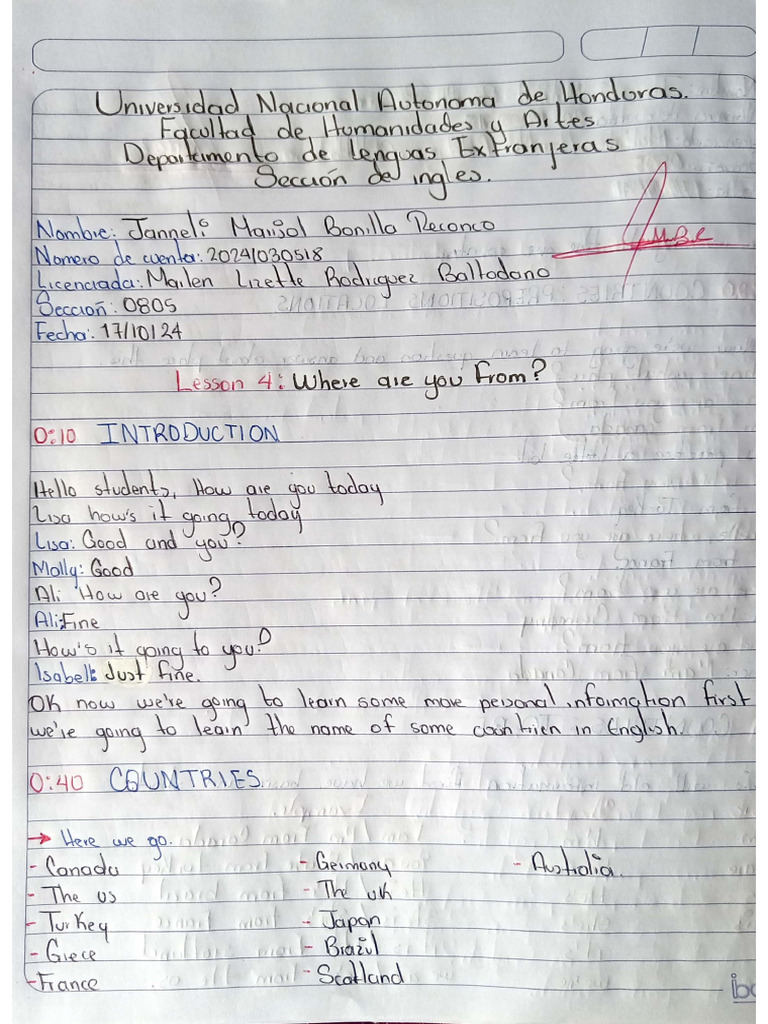 Universidad Nacional Autonoma de Honduras.
Facultad de Humanidades y Artes
Departamento de Lenguas Extranjeras
Sección de ingles.
Nombre: Janneli Marisol Bonilla Reconco
Numero de cuenta: 20241030518
M.B.R
Licenciada: Mailen Lizette Rodriguez Baltodano
Sección: 0805
Fecha: 17/10/24
Lesson 4: Where are you From?
0:10 INTRODUCTION
Hello students, How are you today
Lisa how's it going today
Lisa: Good and you?
Molly: Good
Ali How are you?
Ali: Fine
How's it going to you?
Isabel: Just fine.
OK now we're going to learn some more personal information first
we're going to learn the name of some countrien in English.
0:40 COUNTRIES
→ Here we go.
- Canada - Germany - Australia.
- The US - The UK
- Turkey - Japan
- Griece - Brazil
- France - Scotland